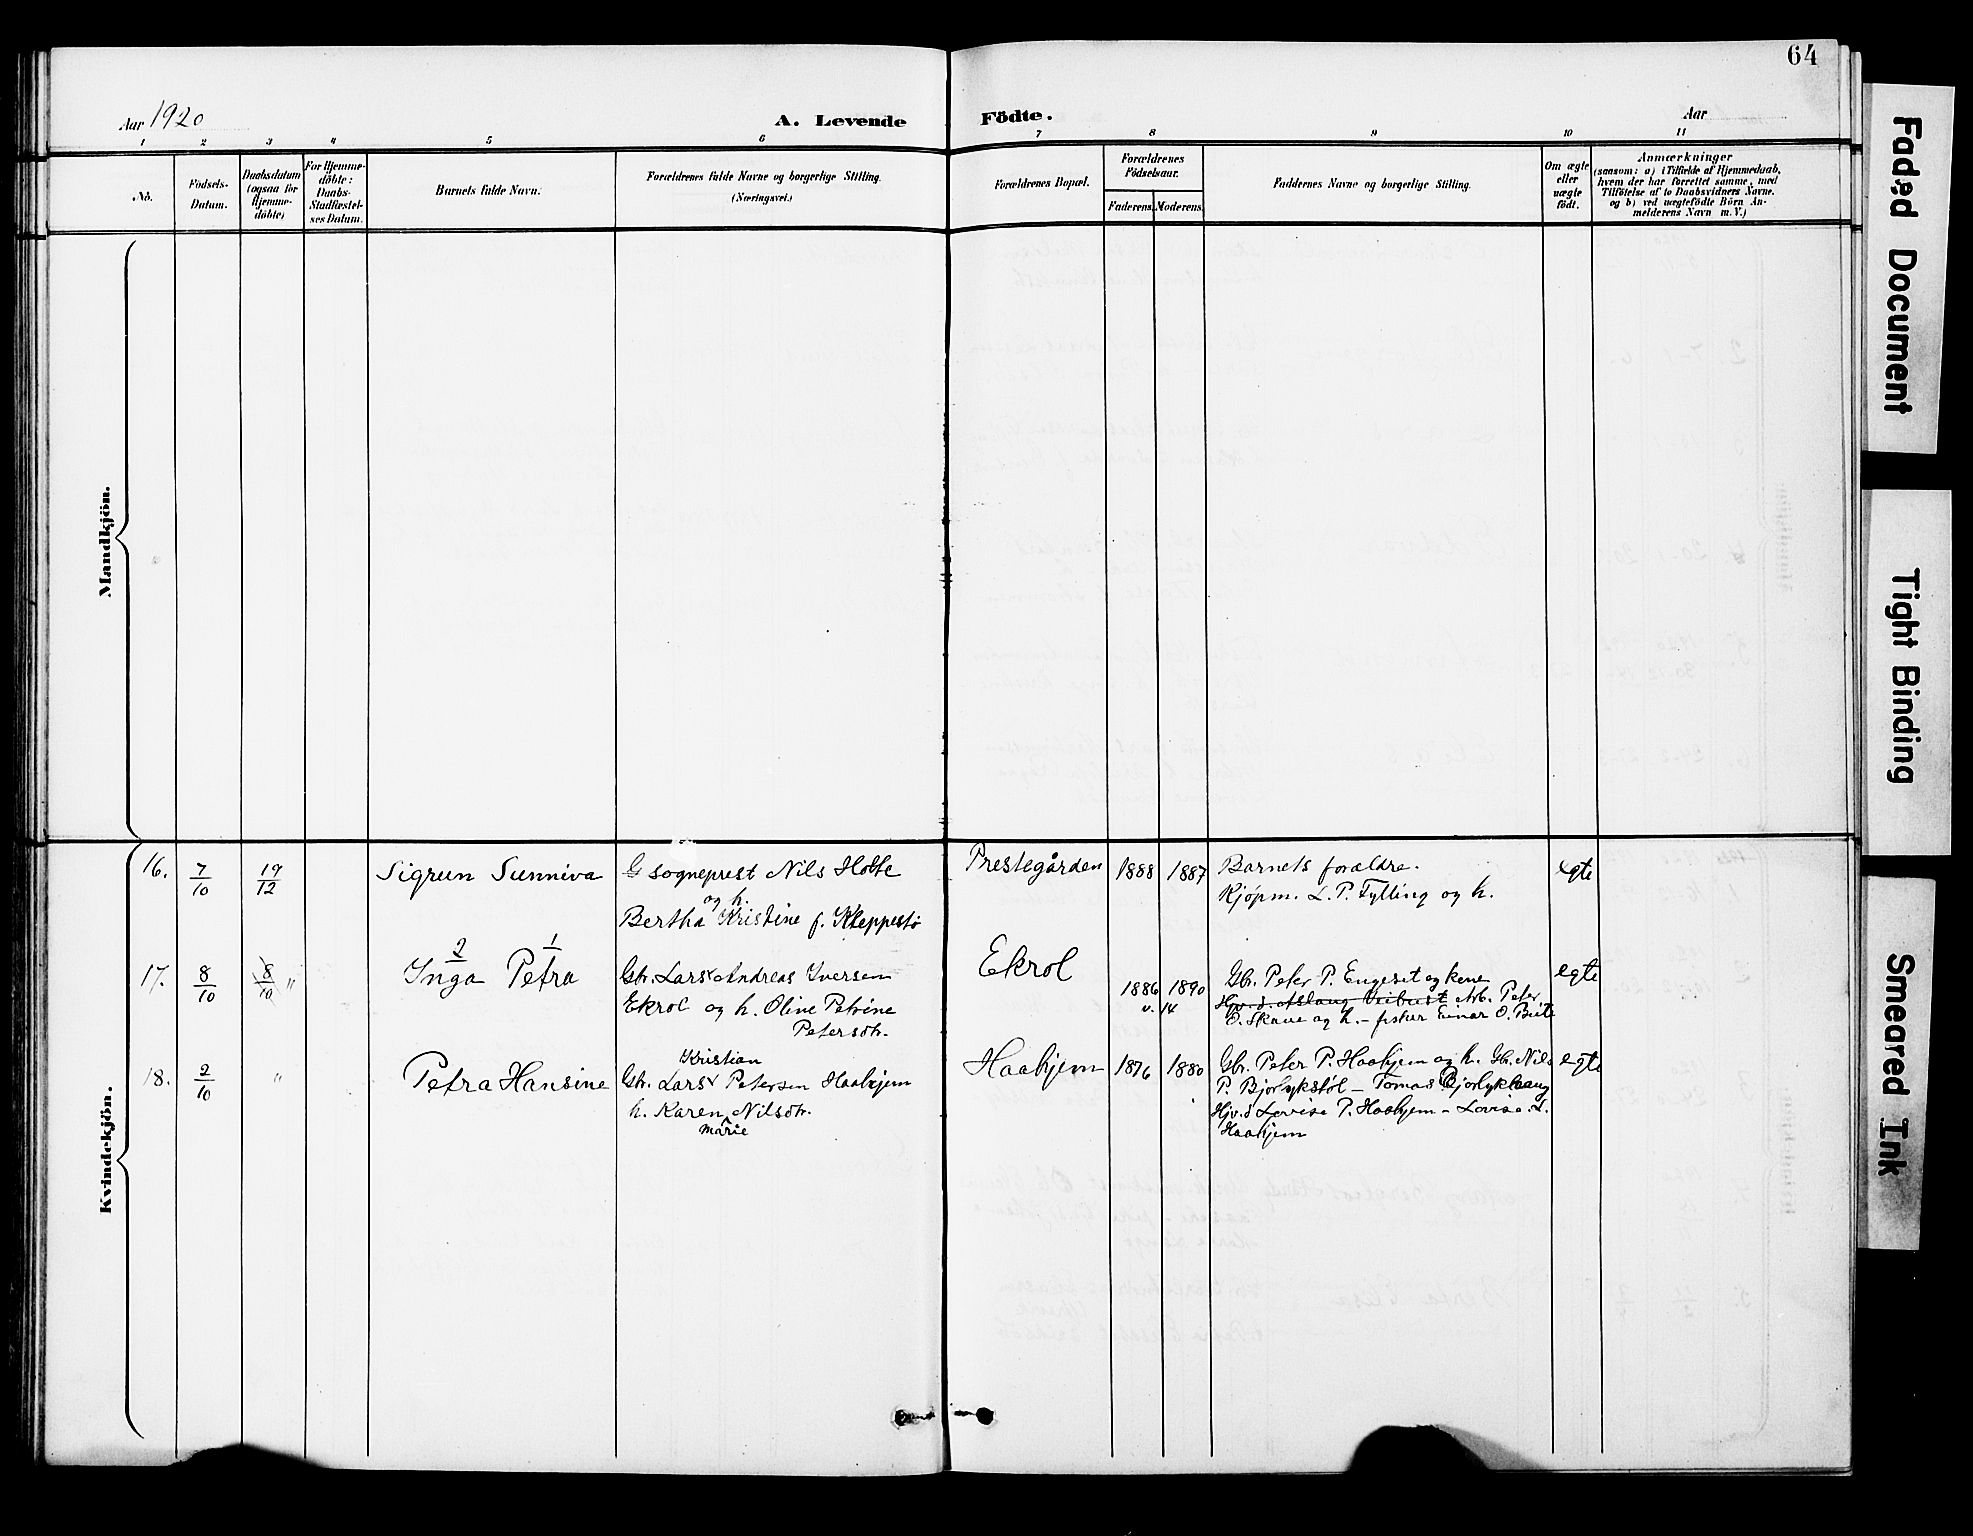 64
Aar 1920
A. Levende
Födte.
Aar
1 2 3 4 5 6 7 8 9 10 11
No.
Födsels-
Datum.
Daabsdatum
(ogsaa for
Hjemme-
döbte)
For Hjemme-
döbte:
Daabs-
Stadfæstel-
ses Datum.
Barnets fulde Navn.
Forældrenes fulde Navne og borgerlige Stilling.
(Næringsvei.)
Forældrenes Bopæl.
Forældrenes
Födselsaar.
Faderens.
Moderens.
Faddernes Navne og borgerlige Stilling.
Om ægte
eller
uægte
födt.
Anmærkninger
(saasom: a) i Tilfælde af Hjemmedaab,
hvem der har forrettet samme, med
Tilföielse af to Daabsvidners Navne.
og b) ved uægtefödte Börn An-
melderens Navn m. V.)
Mandkjön.
Kvindekjön.
16. 7/10 19/12
Sigrun Sunniva
G sogneprest Nils Holte
og h.
Bertha Kristine f. Kleppestø
Prestegården
1888 1887
Barnets forældre.
Kjøpm. L. P. Fylling og h.
egte
17. 8/10 8/10 "
2 1
Inga Petra
Gbr. Lars Andreas Iversen
Ekrol og h. Oline Petrine
Petersdtr.
Ekrol
1886 1890
v. 14
Gbr. Peter P. Engeset og kone
Hjv. d. Aslaug Veibust Arb. Peter
E. Skaue og h. – fisker Einar O.
egte
18. 2/10 "
Petra Hansine
Kristian
Gbr. Lars Petersen Haahjem
h. Karen Nilsdtr.
Marie
Haahjem
1876 1880
Gbr. Peter P. Haahjem og h. Gbr. Nils
P. Bjørlykstøl – Tomas Bjørlykhaug
Hjv. d Lovise P. Haahjem – Lovise L.
Haahjem
egte
Faded Document
Tight Binding
Smeared Ink